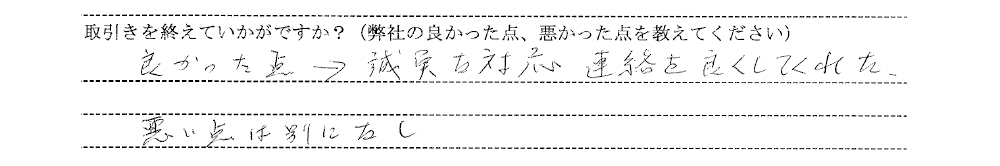 取引きを終えていかがですか？（弊社の良かった点、悪かった点を教えてください）
良かった点 → 誠実な対応 連絡を良くしてくれた.
悪い点は別になし